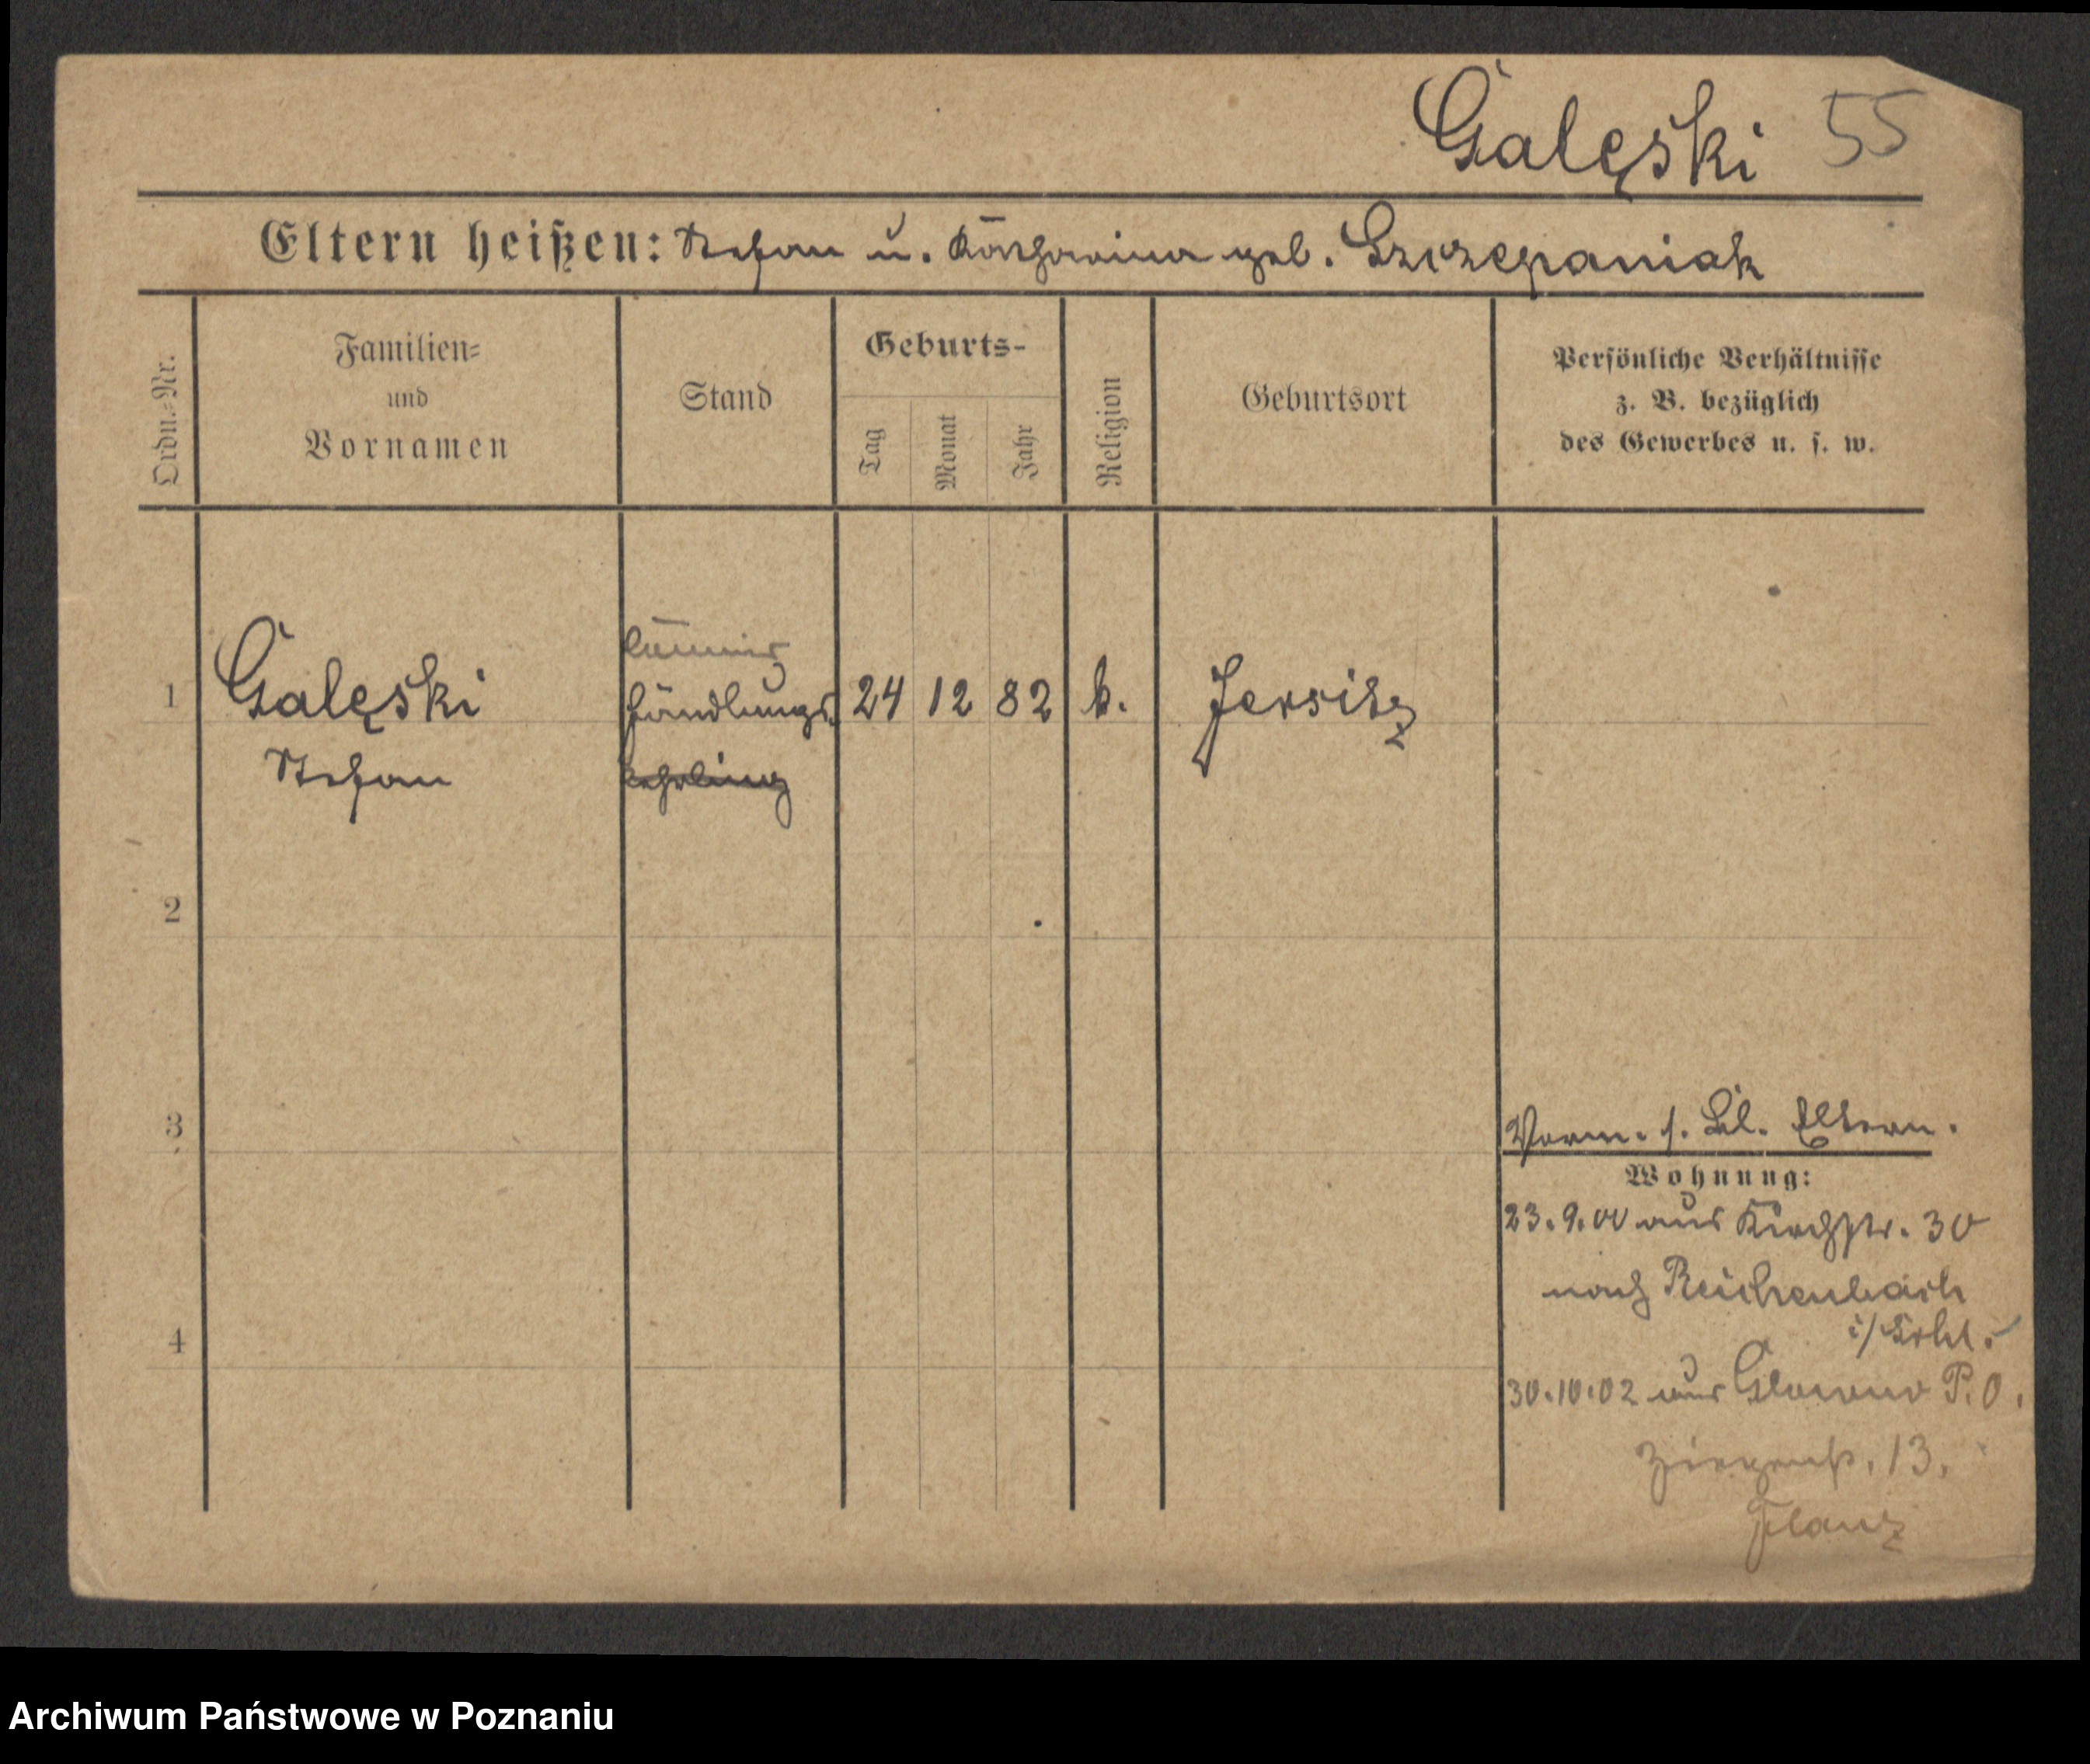 Galęski 55
Eltern heißen: Stefan u. Katharina geb. Szczepaniak
Ordn.-Nr.
Familien-
und
Vornamen
Stand
Geburts-
Tag
Monat
Jahr
Religion
Geburtsort
Persönliche Verhältnisse
z. B. bezüglich
des Gewerbes u. s. w.
1 Galęski Handlungs 24 12 82 k. Jersitz
Stefan Lehrling
2
3
Vorm. s. Bl. Eltern.
Wohnung:
23.9.00 aus Kirchstr. 30
nach Reichenbach
4
30.10.02 aus Glowno P.O.
13.
Archiwum Państwowe w Poznaniu